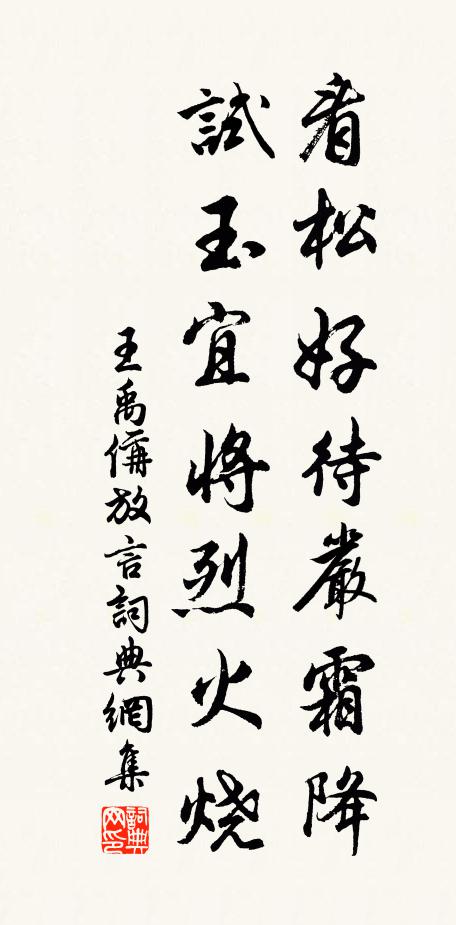 看松好待嚴霜降
試玉宜將烈火燒
王禹偁放言詞典網集
詞典網印